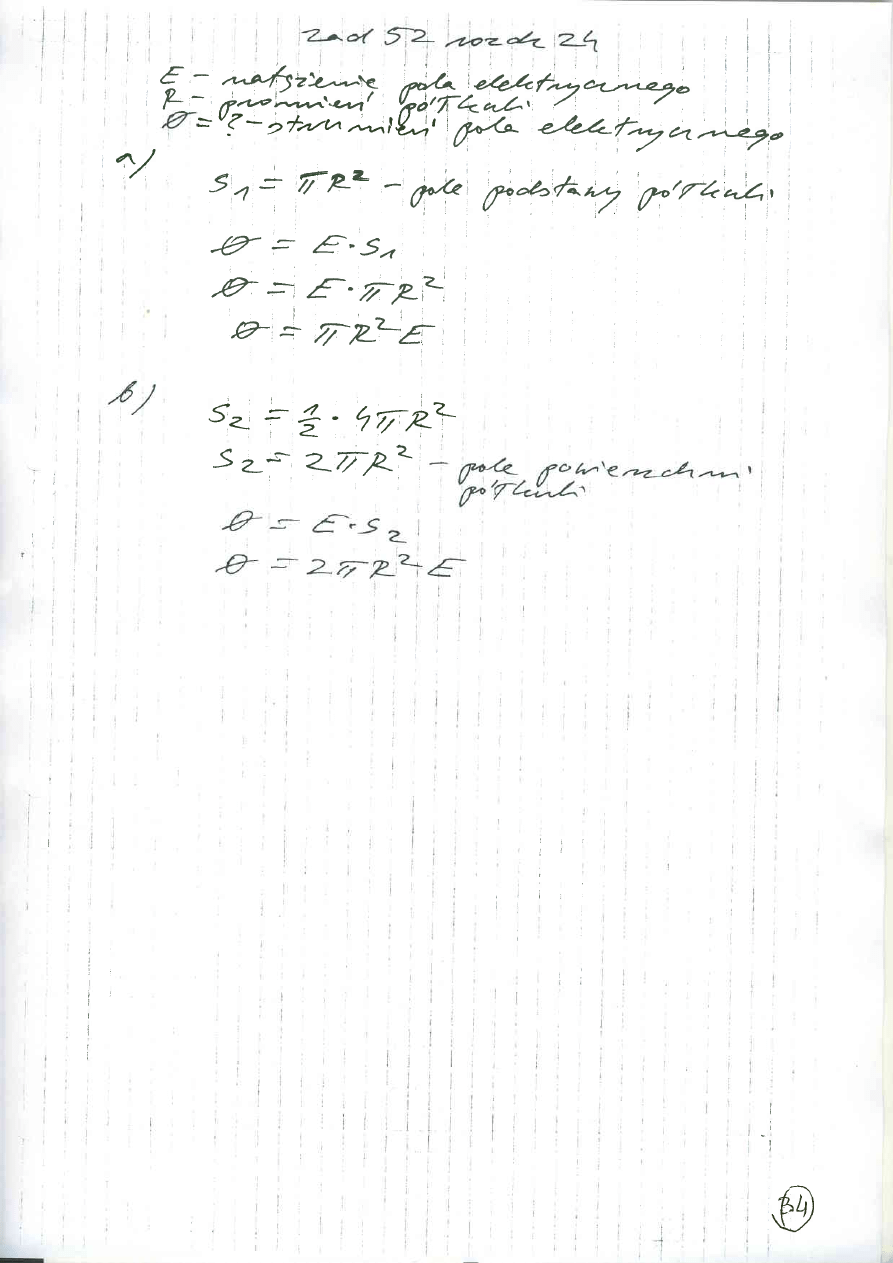 zad 52 rozdz 24
E - natężenie pola elektrycznego
R - promień półkuli
Θ = ? - strumień pola elektrycznego
a)
S₁ = πR² - pole podstawy półkuli
Θ = E·S₁
Θ = E·πR²
Θ = πR²E
b)
S₂ = 1/2 · 4πR²
S₂ = 2πR² - pole powierzchni
półkuli
Θ = E·S₂
Θ = 2πR²E
34